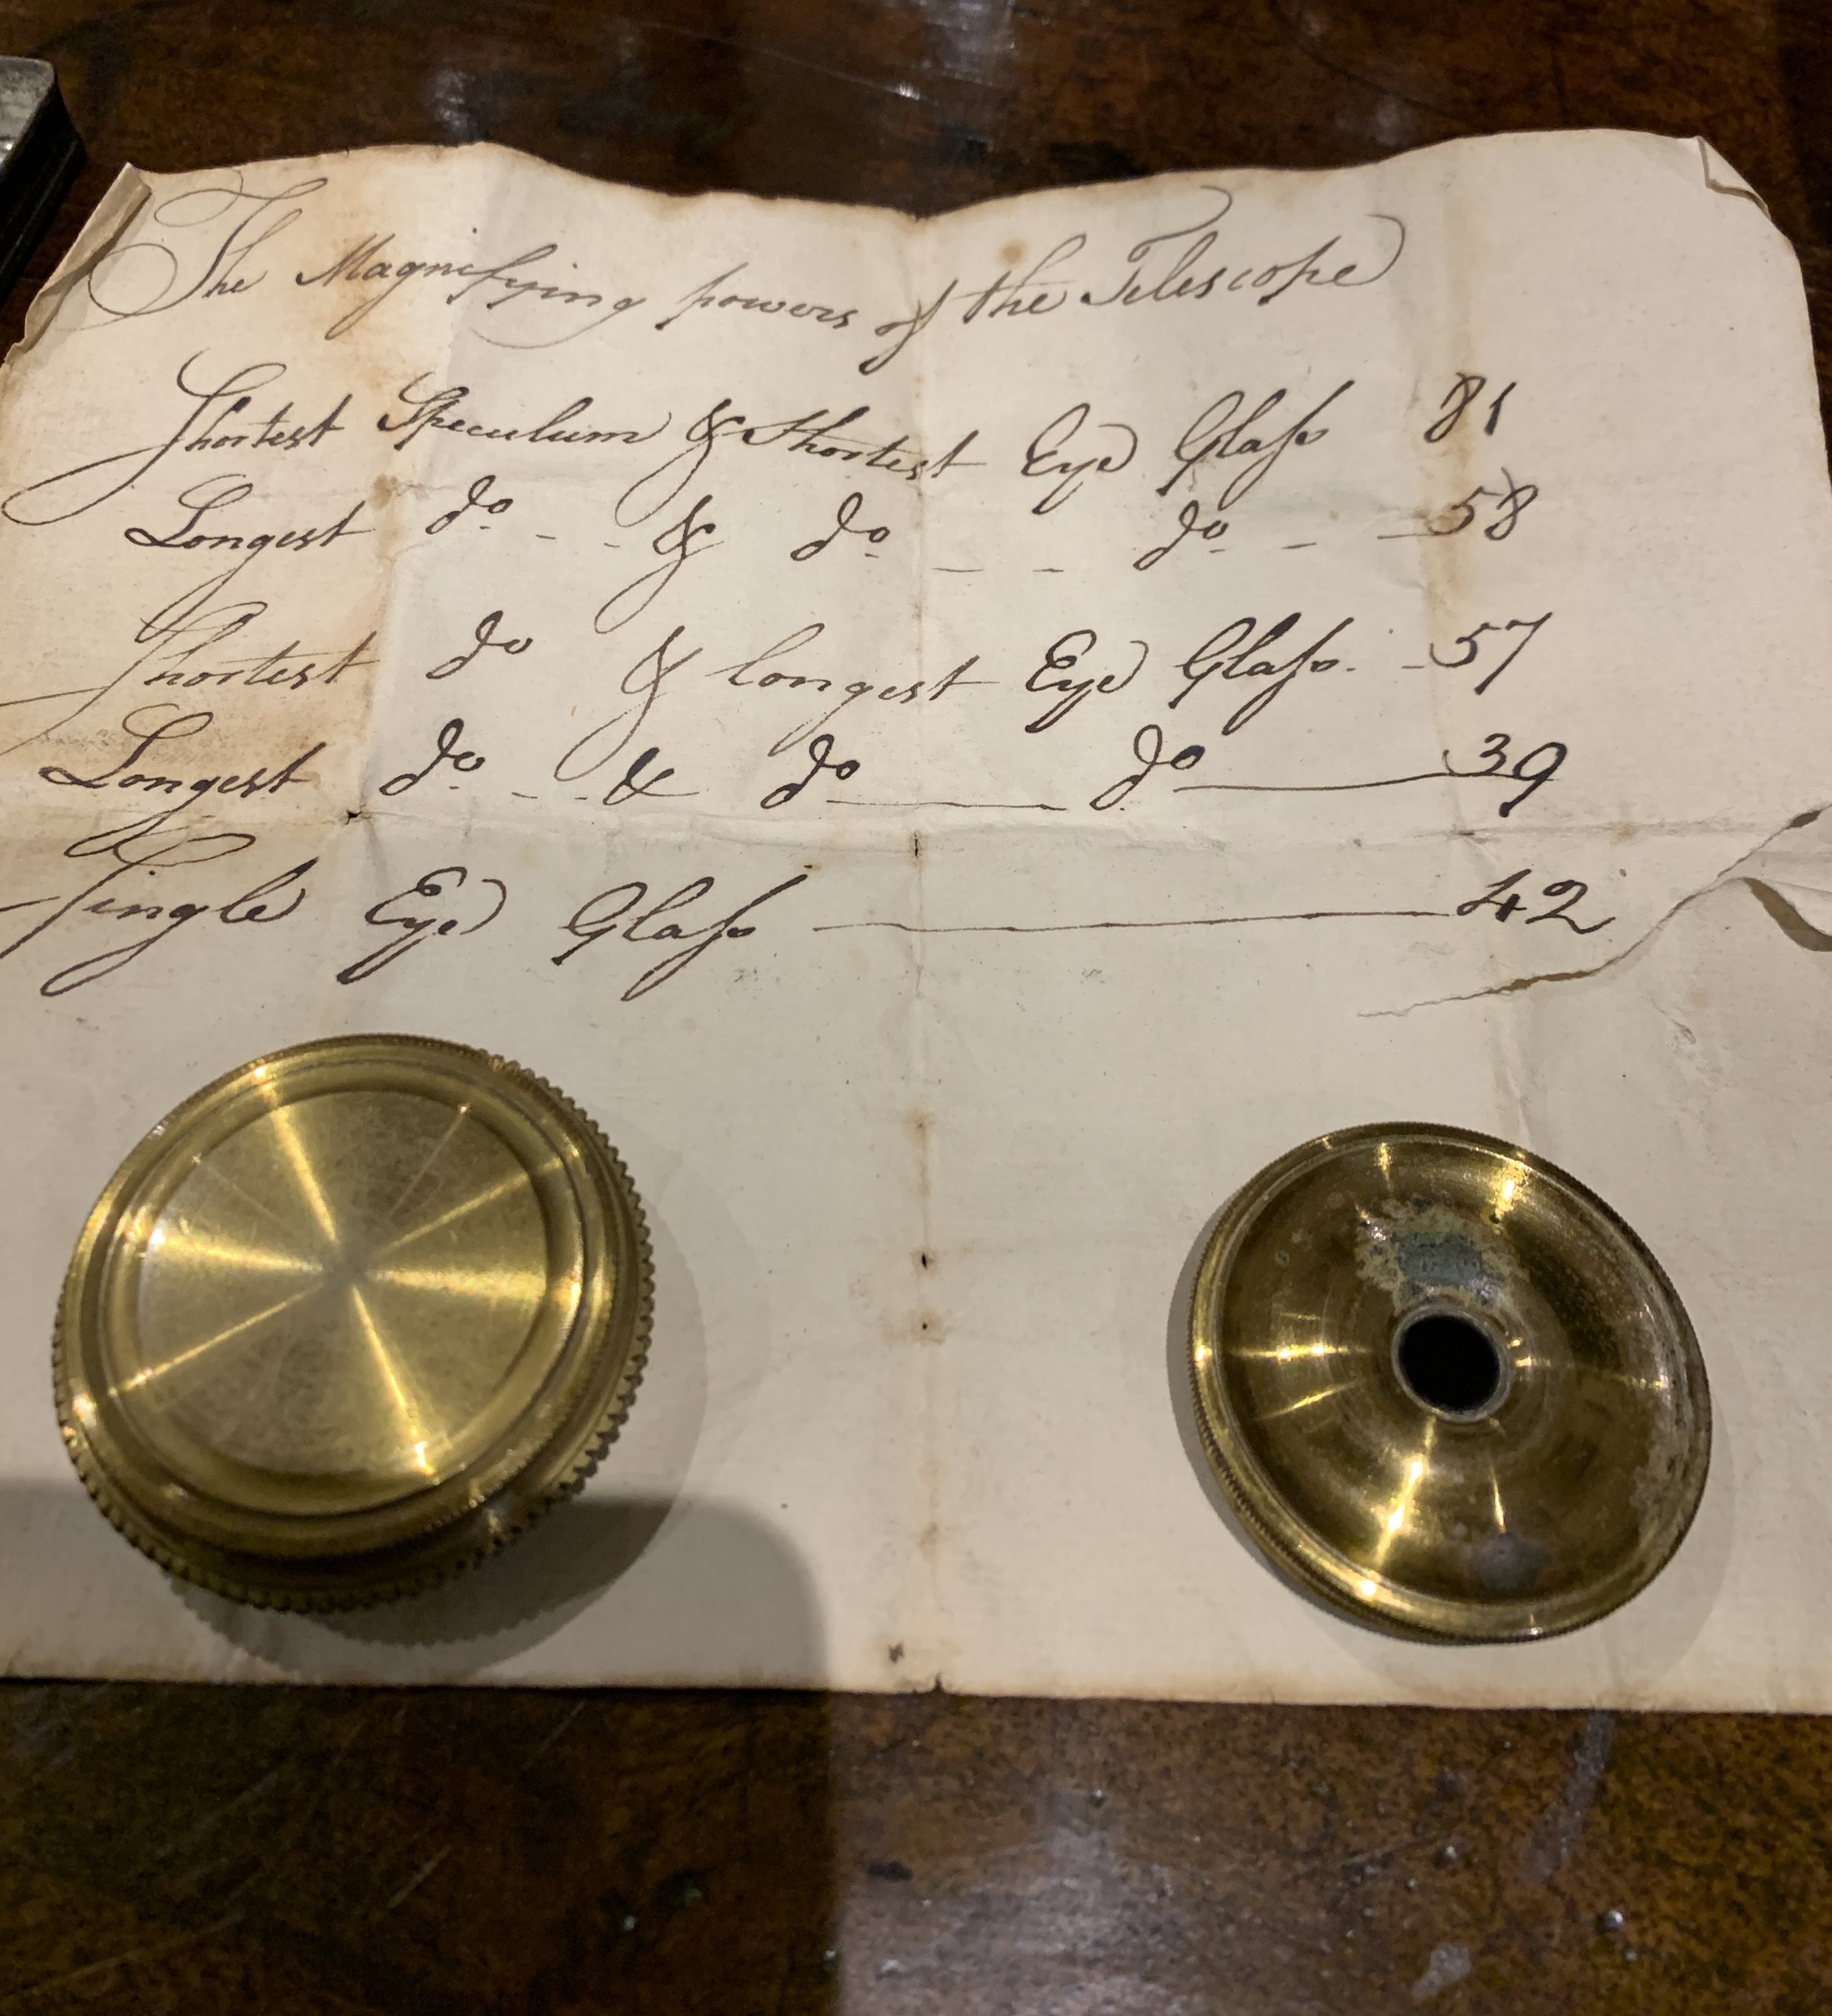 The Magnifying powers of the Telescope
Shortest Speculum & Shortest Eye Glaſs 81
Longest do. - - & do. - - do. - - 58
Shortest do & longest Eye Glaſs. - 57
Longest do. - - & do. — do. — 39
Single Eye Glaſs — 42